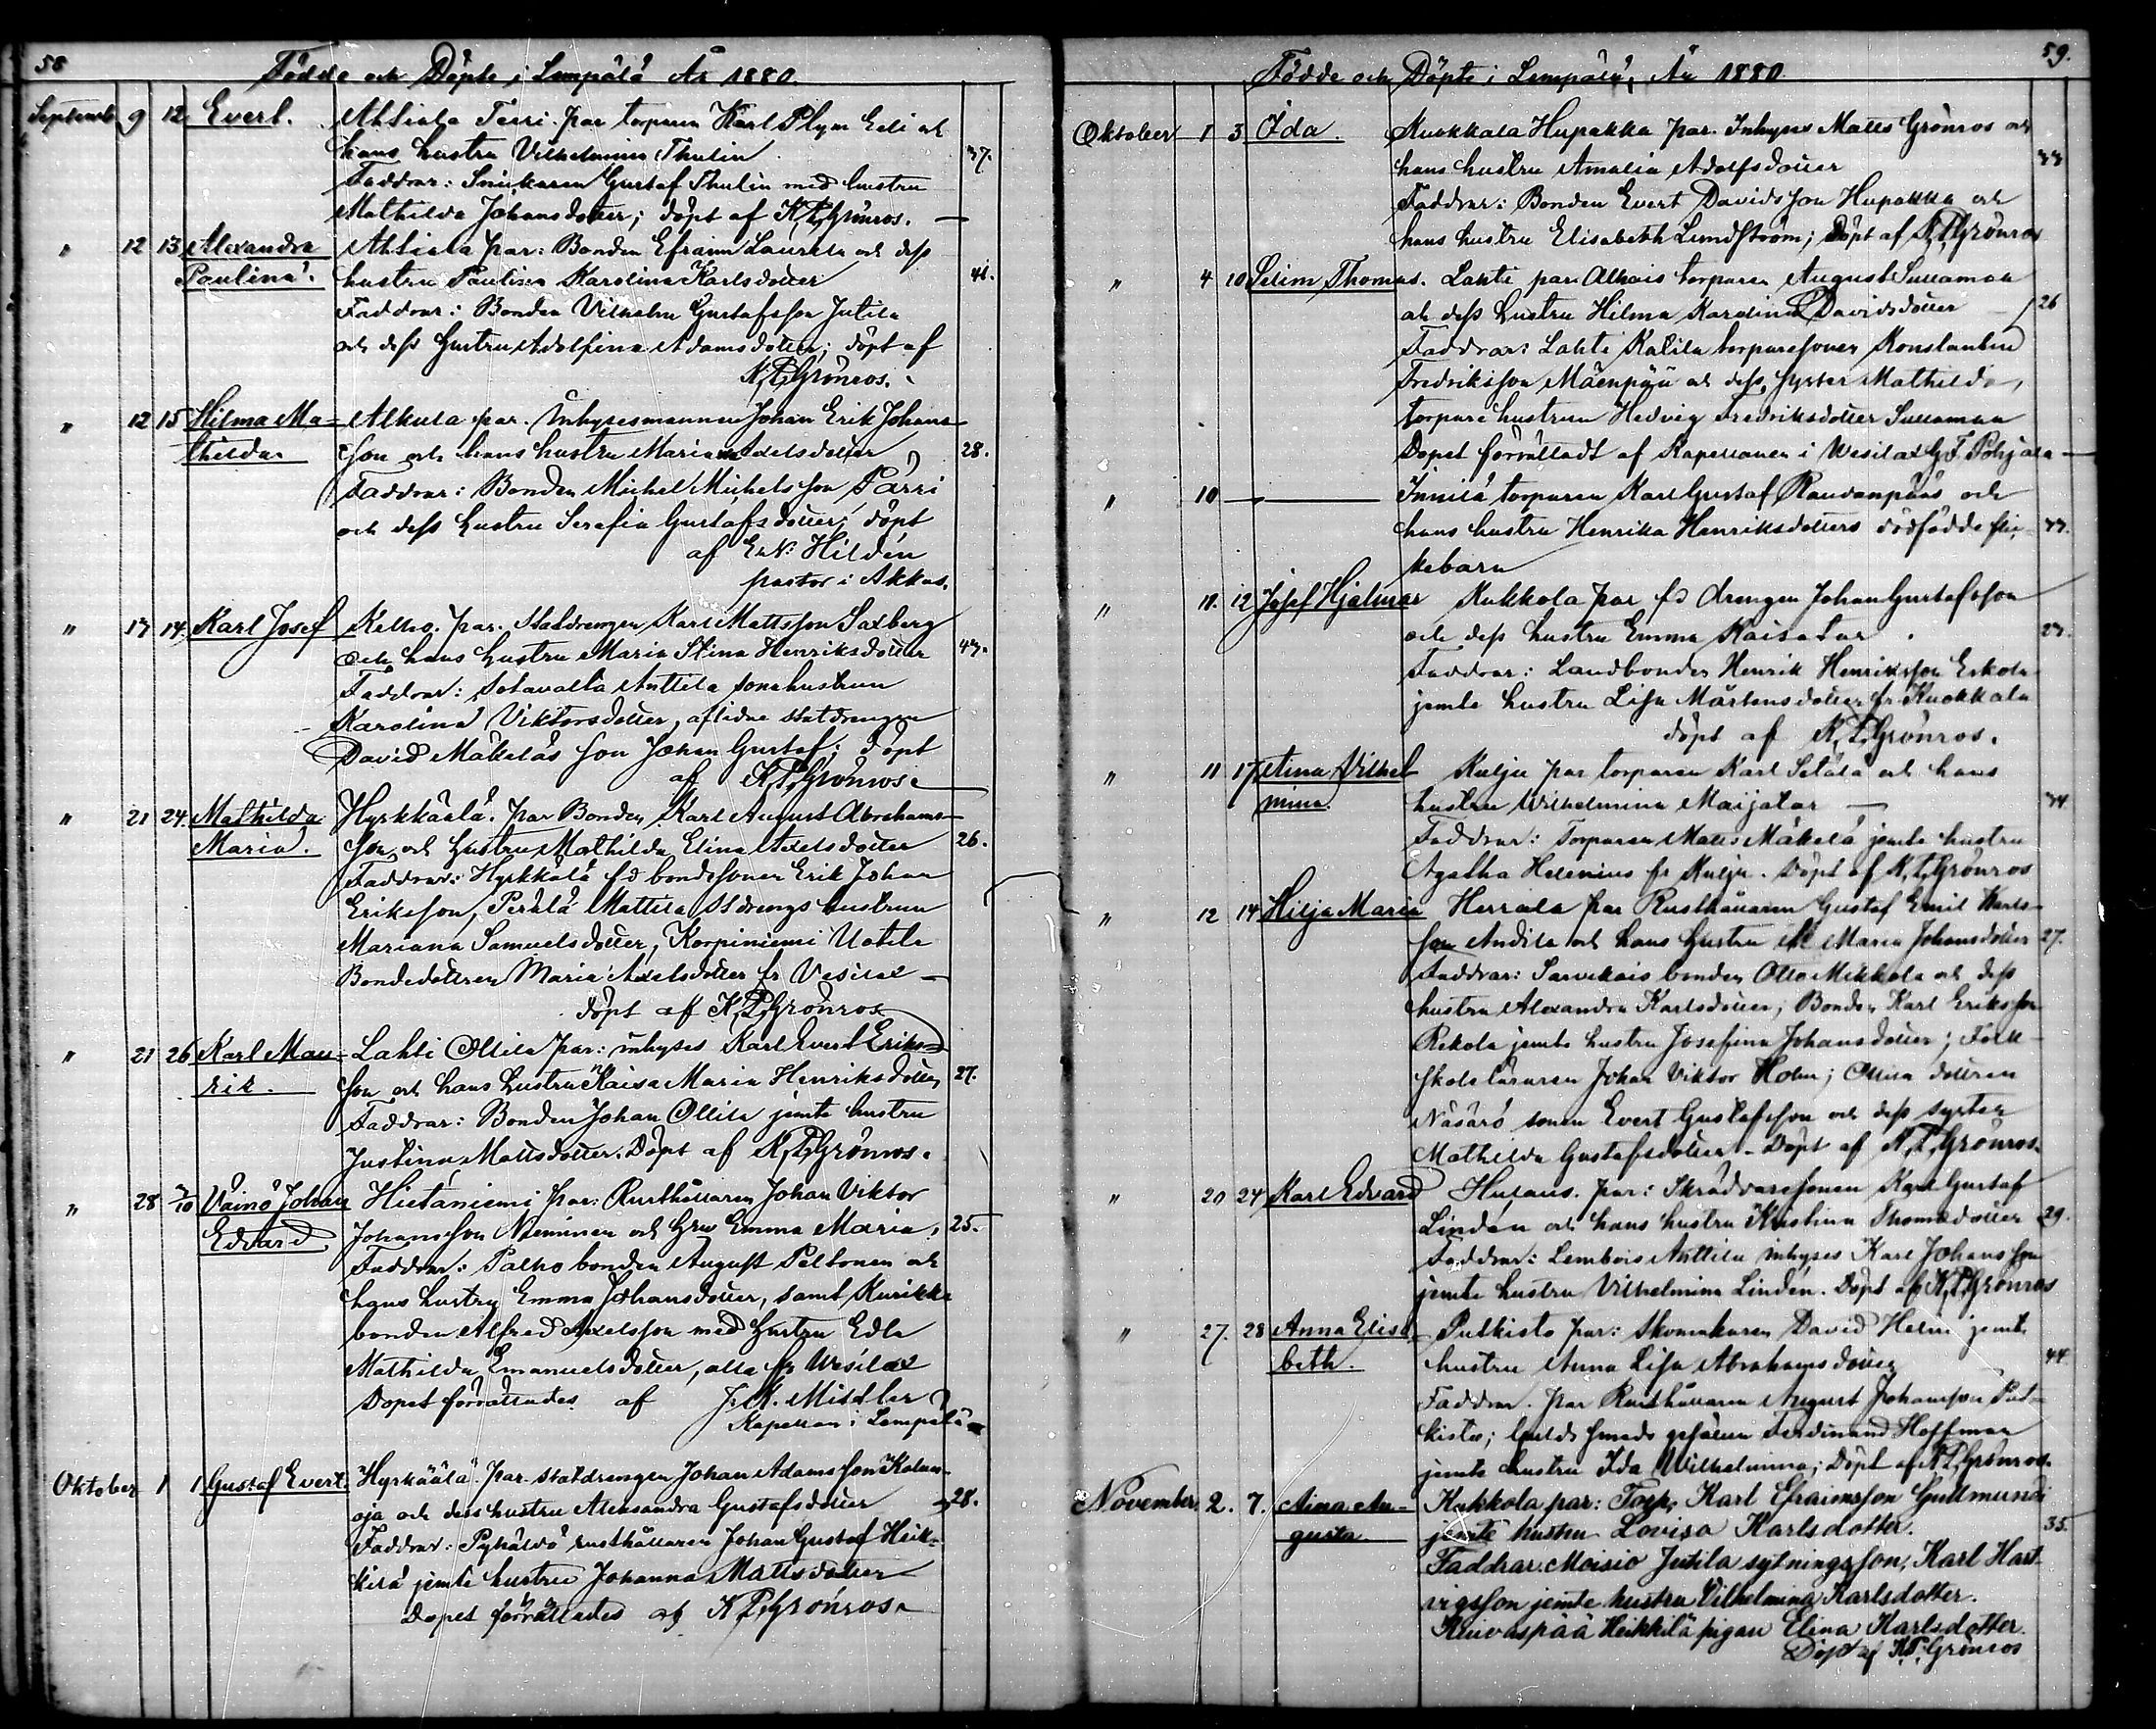 58
Födde och Döpte i Lempälä År 1880.
Septemb 9 12 Evert. Ahtiala par torparen Karl Plym och
hans hustru Vilhelmina Thulin 37.
Faddrar: Snickaren Gustaf Thulin med hustru
Mathilda Johansdotter; döpt af K.T. Grönroos.
" 12 13 Alexandra Ahtiala par: Bonden Efraim Laurila och dess
Paulina. hustru Paulina Karolina Karlsdotter 41.
Faddrar: Bonden Vilhelm Gustafsson Jutila
och dess hustru Adolfina Adamsdotter; döpt af
K.T. Grönroos.
" 12 15 Hilma Ma- Alkula par. Inhysesmannen Johan Erik Johans-
thilda son och hans hustru Maria Axelsdotter 28.
Faddrar: Bonden Michel Michelsson Pärri
och dess hustru Serafia Gustafsdotter; döpt
af Hildén
pastor i Akkas.
" 13 14 Karl Josef Kelho. par. Statdrengen Karl Mattsson Saxberg
och hans hustru Maria Stina Henriksdotter 43.
Faddrar: Sotavalta Anttila sonahustrun
Karolina Viktorsdotter, aflidne statdrengen
David Mäkeläs son Johan Gustaf; döpt
af K.T. Grönroos.
" 21 24 Mathilda Hyrkkälä. par Bonden Karl August Abrahams-
Maria. son och hustru Mathilda Elina Axelsdotter 26.
Faddrar: Hyrkkälä fd bondesonen Erik Johan
Eriksson, Perälä Mattila st.drengs hustrun
Mariana Samuelsdotter, Korpiniemi Uotila
Bondedottren Maria Axelsdotter fr Vesilax
döpt af K.T. Grönroos
" 21 26 Karl Mau- Lahti Ollila par: inhyses Karl Evert Eriks-
rik. son och hans hustru Kaisa Maria Henriksdotter 27.
Faddrar: Bonden Johan Ollila jemte hustru
Justina Mattsdotter. Döpt af K.T. Grönroos.
" 28 3/10 Väinö Johan Hietaniemi par: Rusthållaren Johan Viktor
Edvard Johansson Nieminen och Emma Maria, 25.
Faddrar: Palho bonden August Peltonen och
hans hustru Emma Johansdotter, samt Kurikka
bonden Alfred Axelsson med hustru Edla
Mathilda Emanuelsdotter, alla fr Wesilax
Dopet förrättades af Midtler
Kapellan i Lempälä
Oktober 1 1 Gustaf Evert Hyrkäälä par. statdrengen Johan Adamsson Kolun-
oja och dess hustru Aleksandra Gustafsdotter 28.
Faddrar: Pyhäldö rusthållaren Johan Gustaf Heik-
kilä jemte hustru Johanna Mattsdotter
Dopet förrättades af K.T. Grönros.
59.
Födde och Döpte i Lempälä, År 1880.
Oktober 1 3 Ida. Kuokkala Hupakka par. Inhyses Matts Grönros och
hans hustru Amalia Adolfsdotter 33
Faddrar: Bonden Evert Davidsson Hupakka och
hans hustru Elisabeth Lundström; Döpt af K.T. Grönros
" 4 10 Selim Thomas. Lahti par. Alhais torparen August Sullaman
och dess hustru Hilma Karolina Davidsdotter 26
Faddrar: Lahti Kalila torparesonen Konstantin
Fredriksson Mäenpää och dess syster Mathilda,
torparehustrun Hedvig Fredriksdotter Sullaman
Dopet förrättadt af Kapellanen i Wesilax G.F. Pohjala
" 10 — Innilä torparen Karl Gustaf Raudanpääs och
hans hustru Henrika Henriksdotters dödfödde flic- 33.
kebarn
" 11. 12 Josef Hjalmar Kukkola par fd drengen Johan Gustafsson
och dess hustru Emma Kaisatar 23.
Faddrar: Landbonden Henrik Henriksson Erkola
jemte hustru Lisa Mårtensdotter fr Kuokkala
döpt af K.T. Grönros.
" 11 17 Aina Vilhel- Kulju par torparen Karl Setälä och hans
mina. hustru Wilhelmina Maijatar 34.
Faddrar: Torparen Matts Mäkelä jemte hustru
Agatha Helenius fr Kulju. Döpt af K.T. Grönros
" 12 14 Hilja Maria Herrala par Rusthållaren Gustaf Emil Karls-
son Andila och hans hustru Maria Johansdotter 27.
Faddrar: Sarvikais bonden Otto Mikkola och dess
hustru Alexandra Karlsdotter; Bonden Karl Eriksson
Rekola jemte hustru Josefina Johansdotter; Folk-
skoleläraren Johan Viktor Holm; Ollila dottren
Näsärö sonen Evert Gustafsson och dess syster
Mathilda Gustafsdotter. Döpt af K.T. Grönros.
" 20 24 Karl Edvard Hulaus. par: Skräddaresonen Karl Gustaf
Lindén och hans hustru Kristina Thomasdotter 29.
Faddrar: Lembois Anttila inhyses Karl Johansson
jemte hustru Vilhelmina Lindén. Döpt af K.T. Grönros
" 27. 28 Anna Elisa- Putkisto par: Skomakaren David Helin jemte
beth. hustru Anna Lisa Abrahamsdotter 44
Faddrar. par Rusthållaren August Johansson Put-
kisto; Guldsmeds gesällen Ferdinand Hoffman
jemte hustru Ida Wilhelmina; Döpt af K.T. Grönros.
November. 2. 7. Aina Au- Kukkola par: Torp. Karl Efraimsson Gudmundi
gusta. jemte hustru Lovisa Karlsdotter. 35.
Faddrar. Moisio Jutila sytningsson, Karl Hart-
vigsson jemte hustru Vilhelmina Karlsdotter.
Kuivaspää Heikkilä pigan Elina Karlsdotter.
Döpt af K.T. Grönros